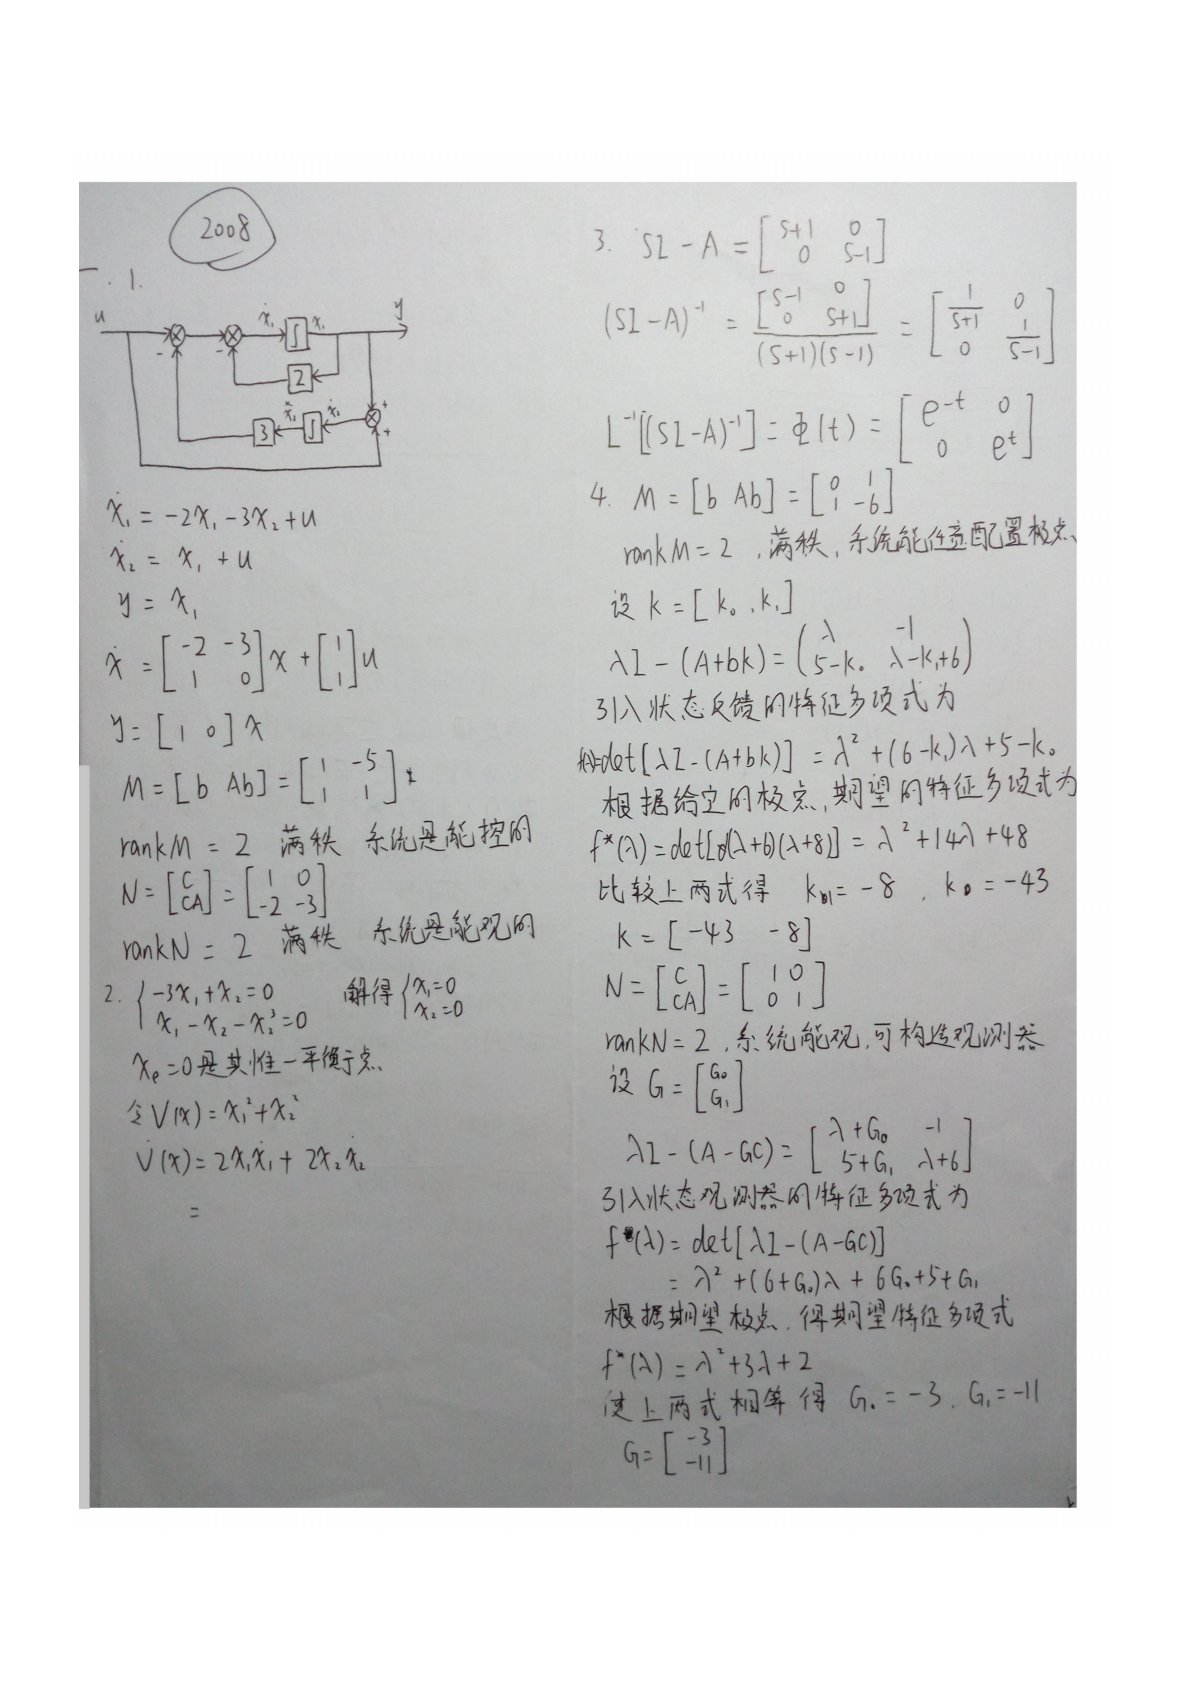 2008
一. 1.
u
ẋ₁
∫
x₁
y
-
-
2
3
x₂
∫
ẋ₂
+
+
ẋ₁ = -2x₁ - 3x₂ + u
ẋ₂ = x₁ + u
y = x₁
ẋ = [-2 -3; 1 0] x + [1; 1] u
y = [1 0] x
M = [b Ab] = [1 -5; 1 1]
rankM = 2 满秩 系统是能控的
N = [C; CA] = [1 0; -2 -3]
rankN = 2 满秩 系统是能观的
2. { -3x₁ + x₂ = 0; x₁ - x₂ - x₂³ = 0 解得 { x₁ = 0; x₂ = 0
xₑ = 0 是其惟一平衡点
令 V(x) = x₁² + x₂²
V̇(x) = 2x₁ẋ₁ + 2x₂ẋ₂
=
3. SI - A = [S+1 0; 0 S-1]
(SI - A)⁻¹ = [S-1 0; 0 S+1] / (S+1)(S-1) = [1/(S+1) 0; 0 1/(S-1)]
L⁻¹[(SI-A)⁻¹] = Φ(t) = [e^-t 0; 0 e^t]
4. M = [b Ab] = [0 1; 1 -6]
rankM = 2 , 满秩, 系统能任意配置极点
设 k = [k₀ , k₁]
λI - (A+bk) = (λ -1; 5-k₀ λ-k₁+6)
引入状态反馈的特征多项式为
f(λ)=det[λI-(A+bk)] = λ² + (6-k₁)λ + 5-k₀
根据给定的极点, 期望的特征多项式为
f*(λ) = det[(λ+6)(λ+8)] = λ² + 14λ + 48
比较上两式得 k₁ = -8 , k₀ = -43
k = [-43 -8]
N = [C; CA] = [1 0; 0 1]
rankN = 2 , 系统能观, 可构造观测器
设 G = [G₀; G₁]
λI - (A-GC) = [λ+G₀ -1; 5+G₁ λ+6]
引入状态观测器的特征多项式为
f(λ) = det[λI-(A-GC)]
= λ² + (6+G₀)λ + 6G₀+5+G₁
根据期望极点, 得期望特征多项式
f*(λ) = λ²+3λ+2
使上两式相等得 G₀ = -3 , G₁ = -11
G = [-3; -11]